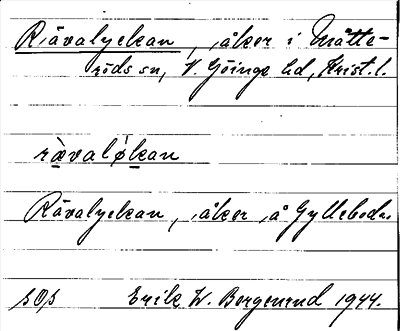 Rävalyckan, åker i Matte-
röds sn, V. Göinge hd, Krist. l.
rävaløkan
Rävalyckan, åker å Gylleboda.
sOs Erik W. Bergenrud 1944.